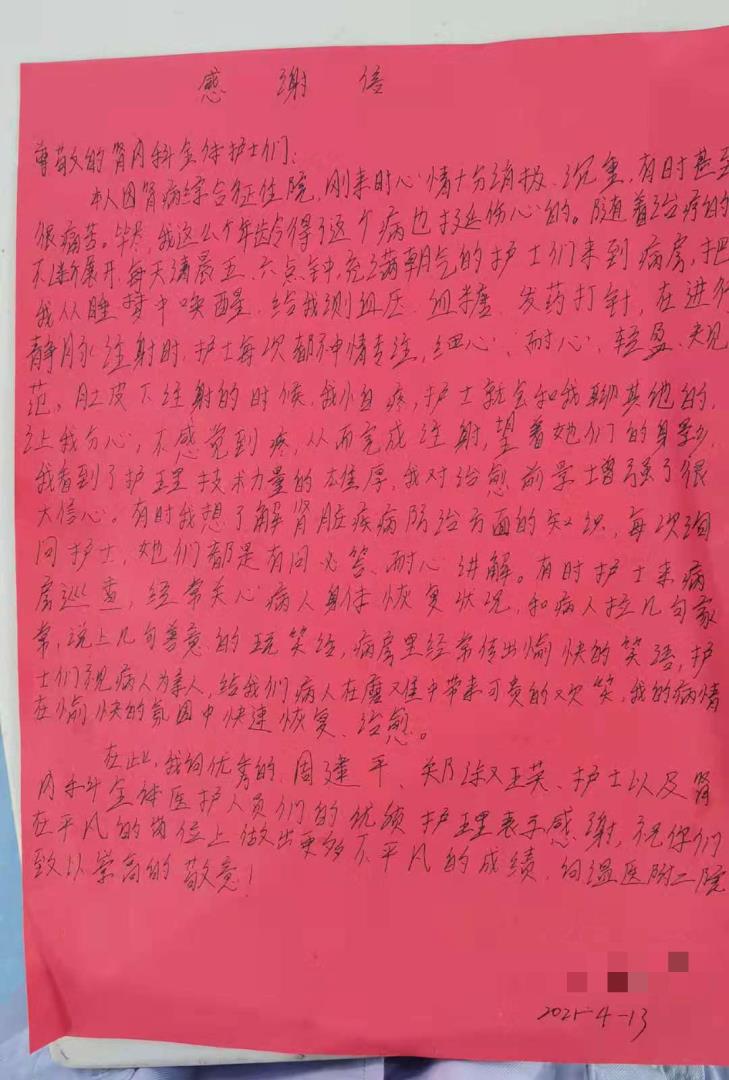 感谢信
尊敬的肾内科全体护士们：
本人因肾病综合征住院，刚来时心情十分消极、沉重，有时甚至
很痛苦。毕竟，我这么个年龄得了这个病也挺伤心的。随着治疗的
不断展开，每天清晨五、六点钟，充满朝气的护士们来到病房，把
我从睡梦中唤醒，给我测血压、血糖、发药打针，在进行
静脉注射时，护士每次都神情专注，细心、耐心、轻盈、规
范，肚皮下注射的时候，我怕疼，护士就会和我聊其他的，
让我分心，不感觉到疼，从而完成注射，望着她们的身影，
我看到了护理技术力量的雄厚，我对治愈前景增强了很
大信心。有时我想了解肾脏疾病防治方面的知识，每次询
问护士，她们都是有问必答、耐心讲解。有时护士来病
房巡查，经常关心病人身体恢复状况，和病人拉几句家
常，说上几句善意的玩笑话，病房里经常传出愉快的笑语，护
士们视病人为亲人，给我们病人在磨难中带来可贵的欢笑，我的病情
在愉快的氛围中快速恢复、治愈。
在此，我向优秀的周建平、郑淑英、护士以及肾
内科全体医护人员们的优质护理表示感谢，祝你们
在平凡的岗位上做出更多不平凡的成绩，向温医附二院
致以崇高的敬意！
2021-4-13